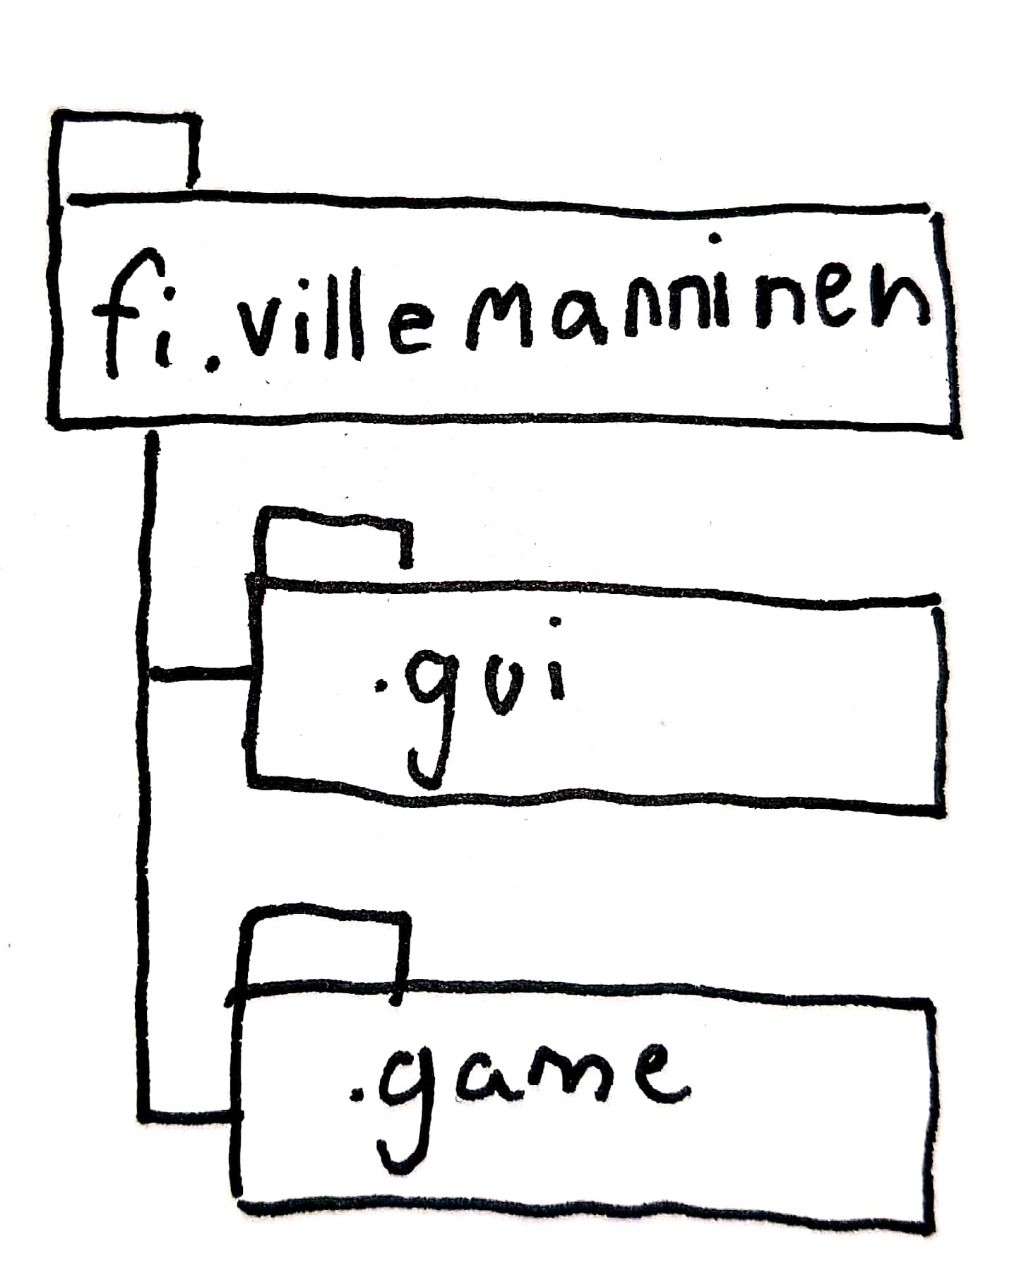 fi.villemanninen
.gui
.game